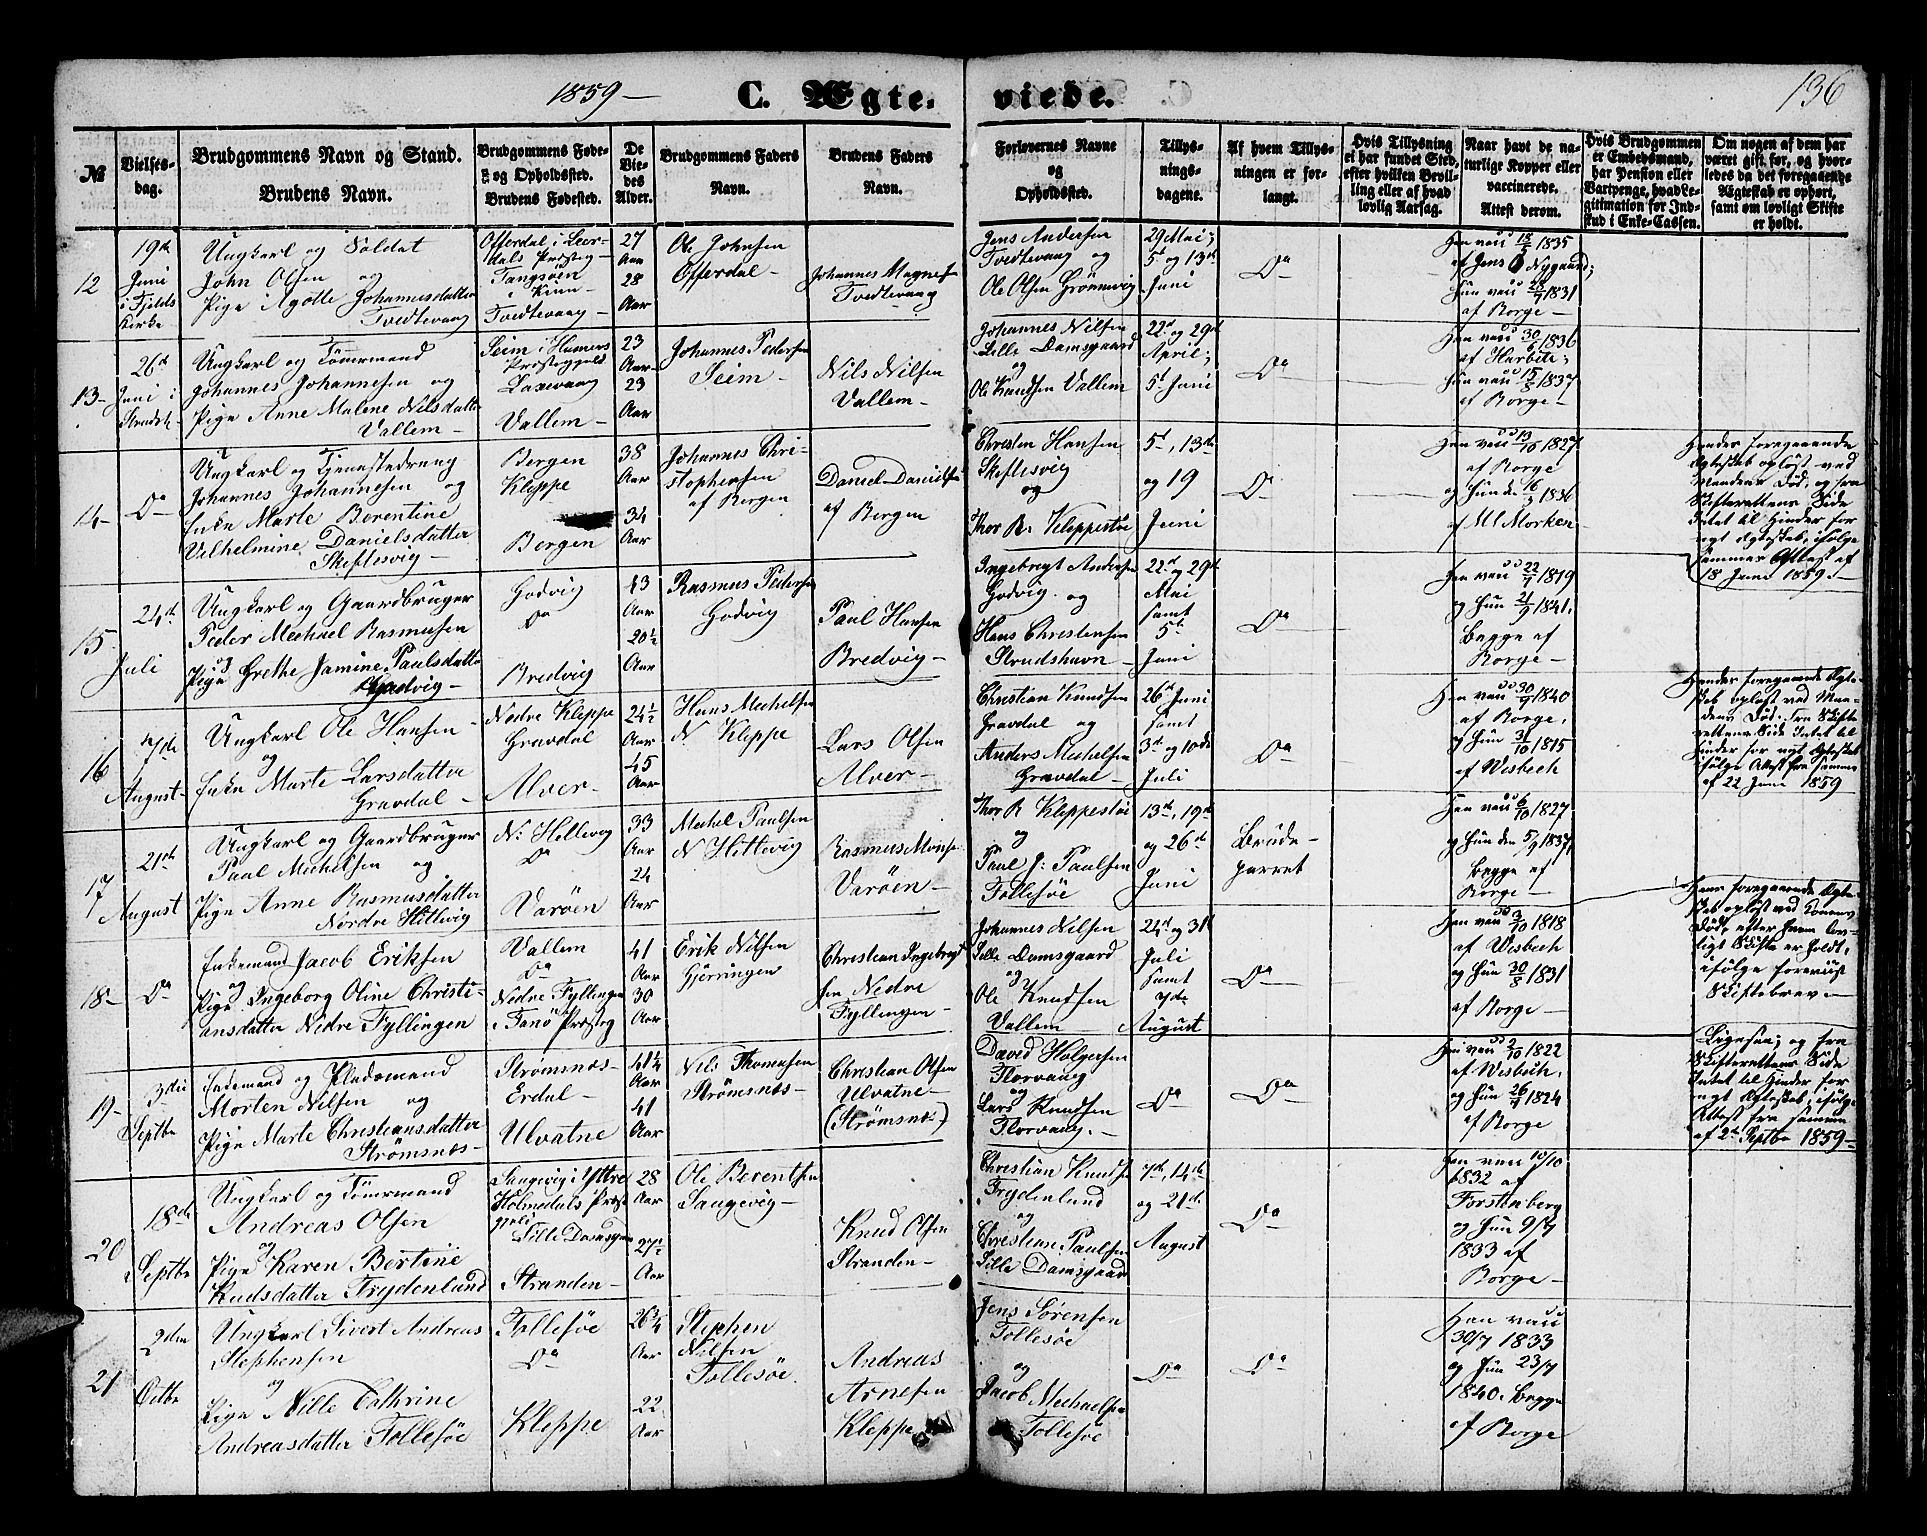 1859 —
C. Ægte-
viede.
136
№
Vielses-
dag.
Brudgommens Navn og Stand.
Brudens Navn.
Brudgommens Føde-
og Opholdssted.
Brudens Fødested.
De
Vie-
des
Alder.
Brudgommens Faders
Navn.
Brudens Faders
Navn.
Forlovernes Navne
og
Opholdssted.
Tillys-
nings-
dagene.
Af hvem Tillys-
ningen er for-
langt.
Hvis Tillysning
ei har fundet Sted,
efter hvilken Bevil-
ling eller af hvad
lovlig Aarsag.
Naar havt de na-
turlige Kopper eller
vaccinerede.
Attest derom.
Hvis Brudgommen
er Embedsmand,
har Pension eller
Vartpenge, hvad Le-
gitimation for Ind-
skud i Enke-Cassen.
Om nogen af dem har
været gift før, og hvor-
ledes da det foregaaende
Ægteskab er ophørt,
samt om lovligt Skifte
er holdt.
12
19de
Juni
i Fjelds
Kirke
Ungkarl og Soldat
John Olsen og
Pige Agotte Johannesdatter
Tvedtevaag
Offerdal i Leer-
dals Præsteg
Tangsøen
i Kinn
Tvedtevaag
27
Aar
28
Aar
Ole Johnsen
Offerdal
Johannes Magnes
Tvedtevaag
Jens Andersen
Tvedtevaag og
Ole Olsen Grønnevig
29 Mai;
5 og 13de
Juni
Do
Han vacc 18/5 1835
af Jens Nygaard;
Hun vacc 28/7 1831
af Borge
13
26de
Juni i
Ungkarl og Tømrmand
Johannes Johannesen og
Pige Anne Malene Nilsdatter
Vallem
Seim i Hammers
Præstegjeld
Laxevaag
Vallem
23
Aar
23
Aar
Johannes Pedersen
Seim
Nils Nilsen
Vallem
Johannes Nilsen
Lille Damsgaard
og
Ole Knudsen Vallem
22de og 29de
April;
5te Juni
Do
Han vacc 30/6 1836
af Harbitz;
Hun vacc 15/5 1837
af Borge
14
Do
Ungkarl og Tjenestedreng
Johannes Johannesen og
Enke Marte Berentine
Vilhelmine Danielsdatter
Skeflesvig
Bergen
Kleppe
Bergen
38
Aar
34
Aar
Johannes Chri-
stophersen
af Bergen
Daniel Danielsen
af Bergen
Christen Hansen
Skeflesvig
og
Thor R. Kleppestø
5te, 13de
og 19
Juni
Do
Han vacc 19/10 1827
af Borge
og Hun de 16/9 1836
af M Morken
Hendes foregaaende
Ægteskab opløst ved
Mandens Død, og fra
Skifterettens Side
Intet til Hinder for
nyt Ægteskab, ifølge
Sammes Attest af
18 Juni 1859.
15
24de
Juli
Ungkarl og Gaardbruger
Peder Mechael Rasmusen
og
Pige Grethe Jamine Paulsdatter
Godvig
Godvig
Do
Bredvig
43
Aar
20½
Aar
Rasmus Pedersen
Godvig
Paul Hansen
Bredvig
Ingebregt Andersen
Godvig og
Hans Christensen
Strudshavn
22de og 29de
Mai
samt
5te
Juni
Do
Han vacc 22/7 1819
og Hun 21/9 1841,
Begge af
Borge
16
7de
August
Ungkarl Ole Hansen
og
Enke Marte Larsdatter
Gravdal
Nedre Kleppe
Gravdal
Alver
24½
Aar
45
Aar
Hans Mechelsen
N. Kleppe
Lars Olsen
Alver
Christian Knudsen
Gravdal og
Anders Mechelsen
Gravdal
26de Juni
samt
3de og 10de
Juli
Do
Han vacc 30/9 1840
af Borge,
og Hun 31/10 1815
af Wisbech
Hendes foregaaende Ægte-
skab opløst ved Man-
dens Død. Fra Skifte-
rettens Side Intet til
Hinder for nyt Ægteskab
ifølge Attest fra Samme
af 22 Juni 1859
17
21de
August
Ungkarl og Gaardbruger
Paul Mechelsen og
Pige Anne Rasmusdatter
Nordre Hittevig
N. Hillevig
Do
Varøen
33
Aar
24
Aar
Mechel Paulsen
N Hittevig
Rasmus Mons
Varøen
Thor R Kleppestø
og
Paul J. Paulsen
Follesøe
13de, 19de
og 26de
Juni
Brude-
parret
Han vacc 6/10 1827
og Hun den 5/9 1837,
Begge af
Borge
18
Do
Enkemand Jacob Eriksen
og
Pige Ingeborg Oline Christi-
ansdatter Nedre Fyllingen
Vallem
Do
Nedre Fyllingen
i Fanø Præsteg
41
Aar
30
Aar
Erik Nilsen
Gjørringen
Christian Ingebregt
sen Nedre
Fyllingen
Johannes Nilsen
Lille Damsgaard
og
Ole Knudsen
Vallem
24de og 31te
Juli
samt
7de
August
Do
Han vacc 3/10 1818
af Wisbech
og Hun 30/8 1831
af Borge
Hans foregaaende Ægte-
skab opløst ved Konens
Død, efter hvem lov-
ligt Skifte er holdt,
ifølge foreviist
Skiftebrev
19
3die
Septbr
Enkemand og Pladsmand
Morten Nilsen og
Pige Marte Christiansdatter
Strømsnæs
Strømsnæs
Erdal
Ulvatne
41¼
Aar
41
Aar
Nils Thomassen
Strømsnæs
Christian Olsen
Ulvatne
(Strømsnæs)
David Holgersen
Florvaag
og
Lars Knudsen
Florvaag.
Do
Do
Han vacc 2/10 1822
af Wisbech,
og Hun 26/9 1824
af Borge
Ligesaa; og fra
Skifterettens Side
Intet til Hinder for
nyt Ægteskab, ifølge
Attest fra samme
af 2de Septbr 1859
20
18de
Septbr
Ungkarl og Tømrmand
Andreas Olsen
og
Pige Karen Bertine
Knudsdatter Frydenlund
Saugevig i Yttre
Holmedals Præst
gjeld
Lille Damsgaard
Stranden
28
Aar
27½
Aar
Ole Berentsen
Saugevig
Knud Olsen
Stranden
Christian Knudsen
Frydenlund
og
Christian Paulsen
Lille Damsgaard
7de, 14de
og 21de
August
Do
Han vacc 10/10
1832 af
Forstenberg
og Hun 9/7
1833 af
Borge
21
2den
Octbr
Ungkarl Sivert Andreas
Stephensen
og
Pige Nille Cathrine
Andreasdatter Follesøe
Follesøe
Do
Kleppe
26¾
Aar
22
Aar
Stephen
Nilsen
Follesøe.
Andreas
Arnesen
Kleppe
Jens Sørensen
Follesøe
og
Jacob Mechaelsen
Follesøe
Do
Do
Han vacc
30/7 1833
og Hun 23/7
1840. Begge
af Borge